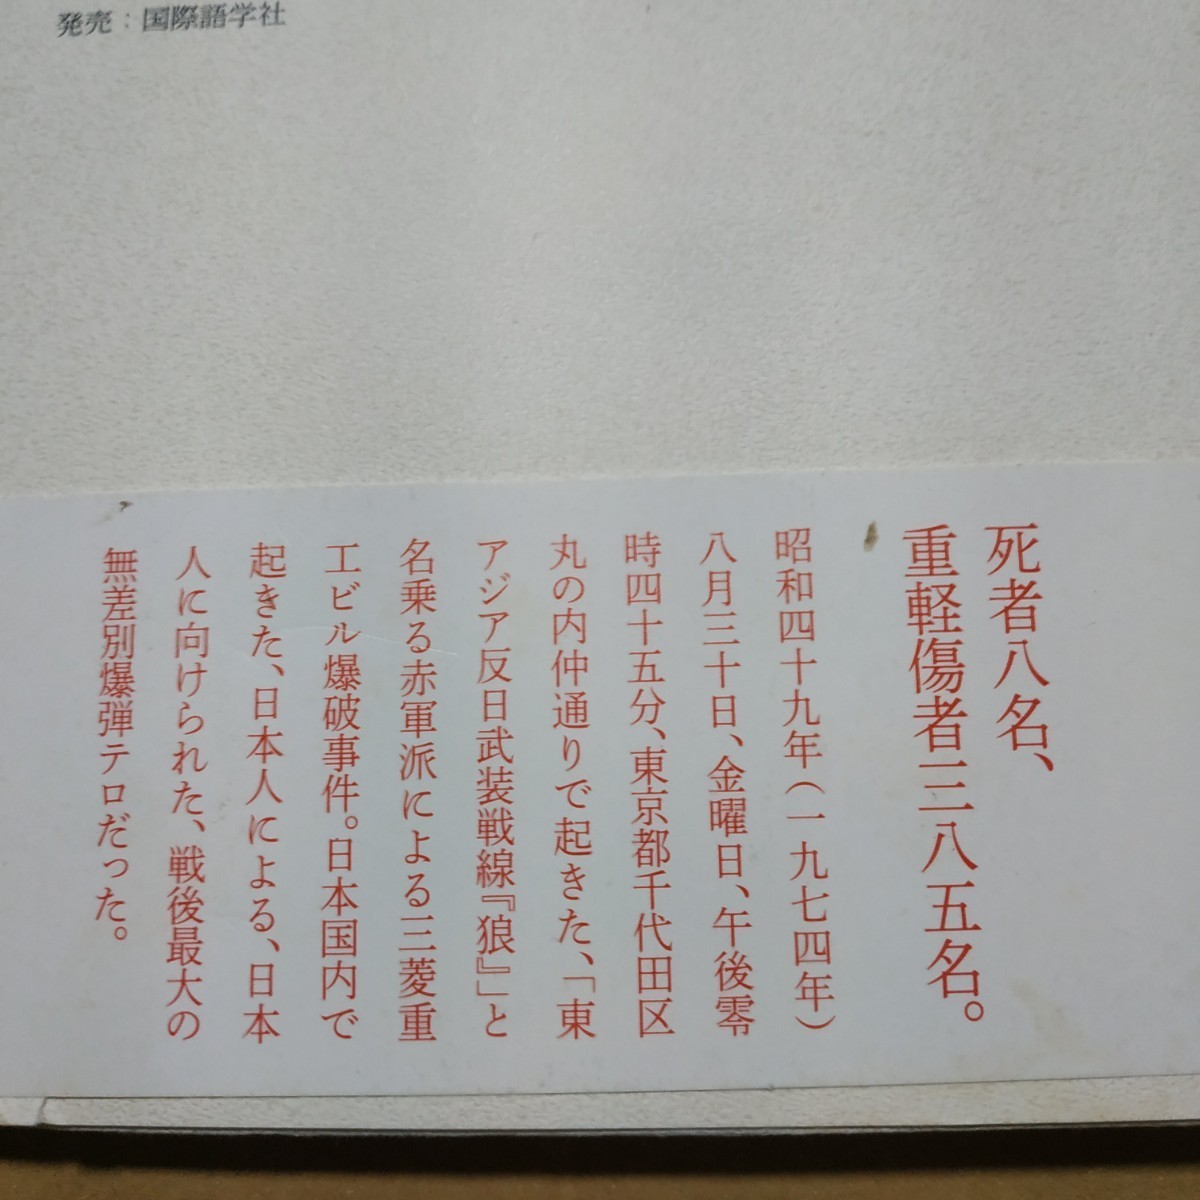 発売：国際語学社
死者八名、
重軽傷者三八五名。
昭和四十九年（一九七四年）
八月三十日、金曜日、午後零
時四十五分、東京都千代田区
丸の内仲通りで起きた、「東
アジア反日武装戦線『狼』」と
名乗る赤軍派による三菱重
工ビル爆破事件。日本国内で
起きた、日本人による、日本
人に向けられた、戦後最大の
無差別爆弾テロだった。